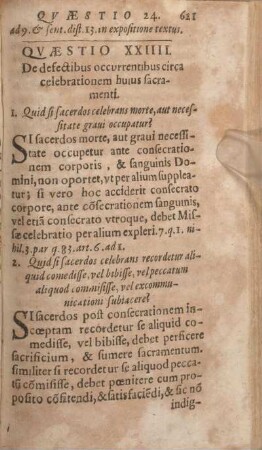 QVÆSTIO 24. 621
ad 9. & sent. dist. 13. in expositione textus.
QVÆSTIO XXIIII.
De defectibus occurrentibus circa
celebrationem huius sacra-
menti.
1. Quid si sacerdos celebrans morte, aut neces-
sitate graui occupatur?
SI sacerdos morte, aut graui necessi-
tate occupetur ante consecratio-
nem corporis, & sanguinis Do-
mini, non oportet, vt per alium supplea-
tur; si vero hoc acciderit consecrato
corpore, ante cõsecrationem sanguinis,
vel etiã consecrato vtroque, debet Mis-
sæ celebratio per alium expleri. 7. q. 1. ni-
hil. 3. par q. 83. art. 6. ad 1.
2. Quid si sacerdos celebrans recordetur ali-
quid comedisse, vel bibisse, vel peccatum
aliquod commisisse, vel excommu-
nicationi subiacere?
SI sacerdos post consecrationem in-
cœptam recordetur se aliquid co-
medisse, vel bibisse, debet perficere
sacrificium, & sumere sacramentum.
similiter si recordetur se aliquod pecca-
tũ cõmisisse, debet pœnitere cum pro-
posito cõfitendi, & satisfaciẽdi, & sic nõ
indig-